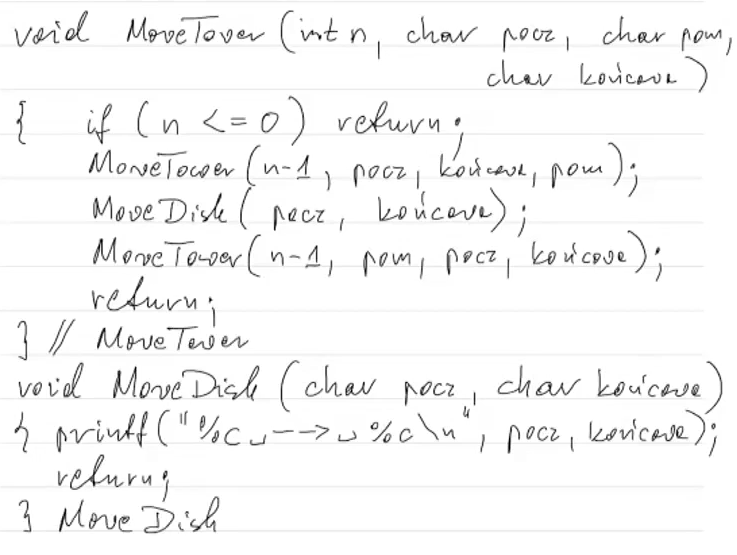 void MoveTower (int n, char pocz, char pom,
char końcowe)
{ if (n <= 0) return;
MoveTower(n-1, pocz, końcowe, pom);
MoveDisk( pocz, końcowe);
MoveTower(n-1, pom, pocz, końcowe);
return;
} // MoveTower
void MoveDisk (char pocz, char końcowe)
{ printf("%c␣-->␣%c\n", pocz, końcowe);
return;
} MoveDisk